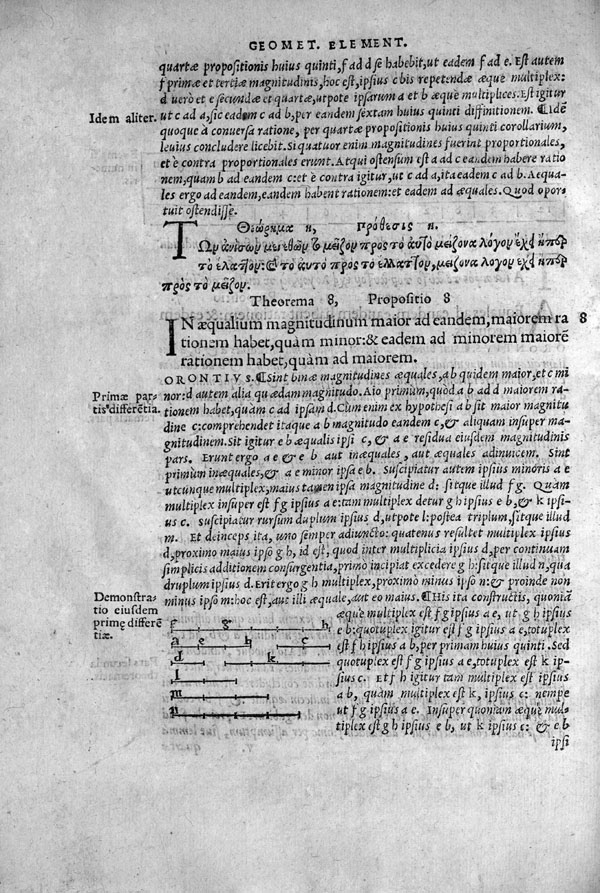 GEOMET. ELEMENT.
quartæ propositionis huius quinti, f ad d sē habebit, ut eadem f ad e. Est autem
f primæ et tertiæ magnitudinis, hoc est, ipsius c bis repetendæ æque multiplex:
d uerò et e secundæ et quartæ, utpote ipsarum a et b æque multiplices. Est igitur
Idem aliter.
ut c ad a, sic eadem c ad b, per eandem sextam huius quinti diffinitionem. ¶Idē
quoque à conuersa ratione, per quartæ propositionis huius quinti corollarium,
leuius concludere licebit. Si quatuor enim magnitudines fuerint proportionales,
et è contra proportionales erunt. Atqui ostensum est a ad c eandem habere ratio
nem, quam b ad eandem c: et è contra igitur, ut c ad a, ita eadem c ad b. Aequa-
les ergo ad eandem, eandem habent rationem: et eadem ad æquales. Quod opor-
tuit ostendisse.
Θεώρημα η, Πρόθεσις η.
ΤΩν ἀνίσων μεγεθῶν τὸ μεῖζον πρὸς τὸ αὐτὸ μείζονα λόγον ἔχει ἤπερ
τὸ ἔλαττον: καὶ τὸ αὐτὸ πρὸς τὸ ἔλαττον, μείζονα λόγον ἔχει ἤπερ
πρὸς τὸ μεῖζον.
Theorema 8, Propositio 8
INæqualium magnitudinum maior ad eandem, maiorem ra 8
tionem habet, quàm minor: & eadem ad minorem maiorē
rationem habet, quàm ad maiorem.
ORONTIVS. ¶Sint binæ magnitudines æquales, ab quidem maior, et c mi
Primæ par-
tis differētia.
nor: d autem alia quædam magnitudo. Aio primum, quòd a b ad d maiorem ra-
tionem habet, quàm c ad ipsam d. Cum enim ex hypothesi a b sit maior magnitu
dine c: comprehendet itaque a b magnitudo eandem c, & aliquam insuper ma-
gnitudinem. Sit igitur e b æqualis ipsi c, & a e residua eiusdem magnitudinis
pars. Erunt ergo a e & e b aut inæquales, aut æquales adinuicem. Sint
primùm inæquales, & a e minor ipsa e b. Suscipiatur autem ipsius minoris a e
utcunque multiplex, maius tamen ipsa magnitudine d: sitque illud f g. Quàm
multiplex insuper est f g ipsius a e: tam multiplex detur g h ipsius e b, & k ipsi-
us c. suscipiatur rursum duplum ipsius d, utpote l: postea triplum, sitque illud
m. Et deinceps ita, uno semper adiuncto: quatenus resultet multiplex ipsius
d, proximo maius ipso g h, id est, quod inter multiplicia ipsius d, per continuam
simplicis additionem consurgentia, primo incipiat excedere g h: sitque illud n, qua
druplum ipsius d. Erit ergo g h multiplex, proximò minus ipso n: & proinde non
Demonstra-
tio eiusdem
primę differē
tiæ.
minus ipso m: hoc est, aut illi æquale, aut eo maius. ¶His ita constructis, quoniā
æque multiplex est f g ipsius a e, ut g h ipsius
e b: quotuplex igitur est f g ipsius a e, totuplex
est f h ipsius a b, per primam huius quinti. Sed
quotuplex est f g ipsius a e, totuplex est k ip-
sius c. Et f h igitur tam multiplex est ipsius
a b, quàm multiplex est k, ipsius c: nempe
ut f g ipsius a e. Insuper quoniam æque mul-
tiplex est g h ipsius e b, ut k ipsius c: & e b
ipsi
f g h
a e b c
d k
l
m
n